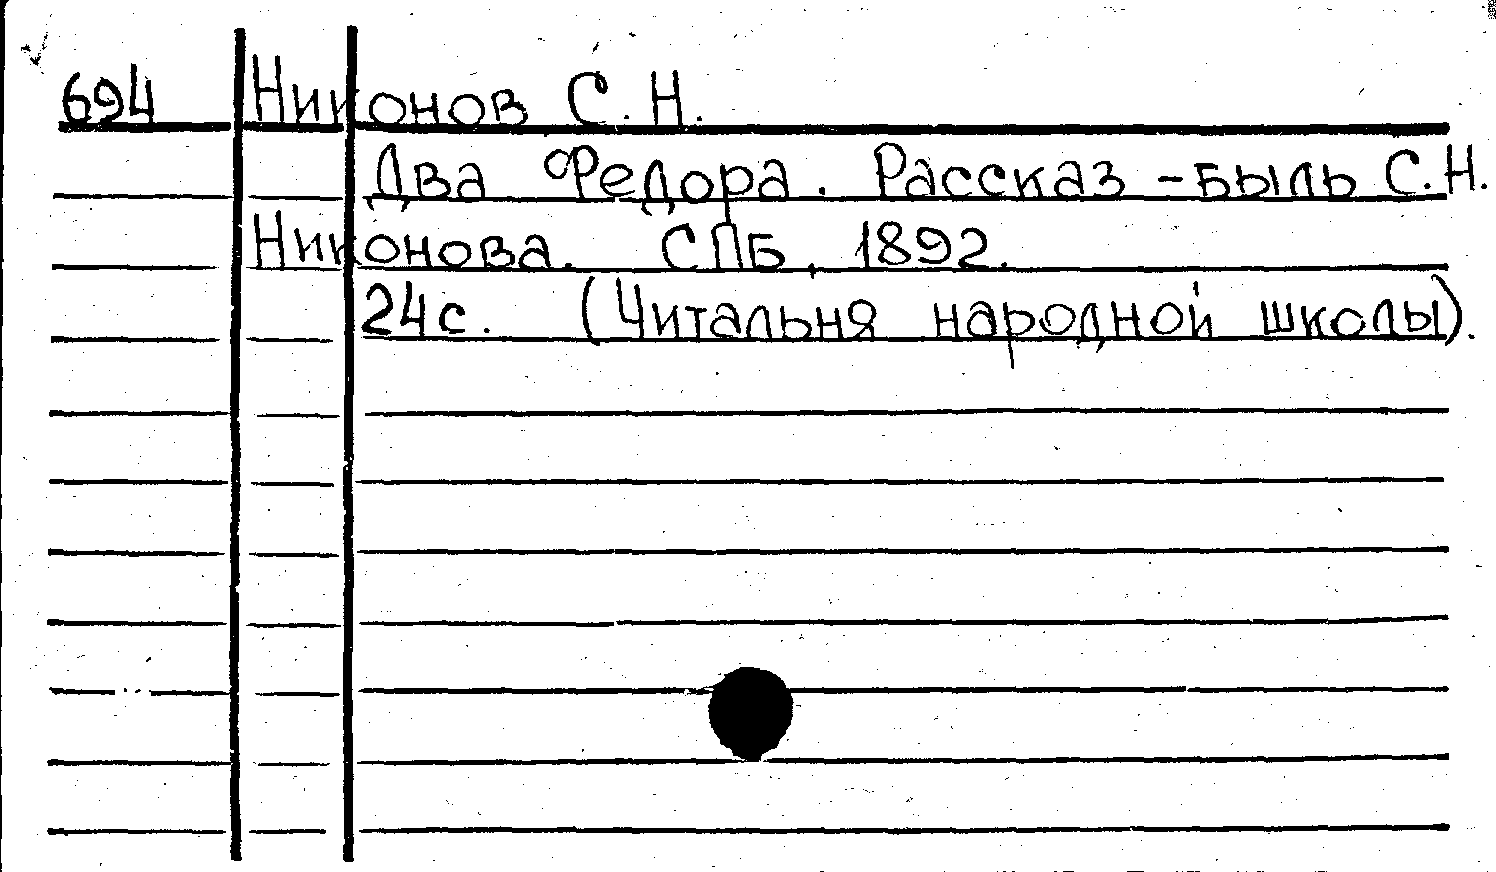 694 Никонов С. Н.
Два Федора. Рассказ - быль С.Н.
Никонова. СПБ, 1892.
24с. (Читальня народной школы).